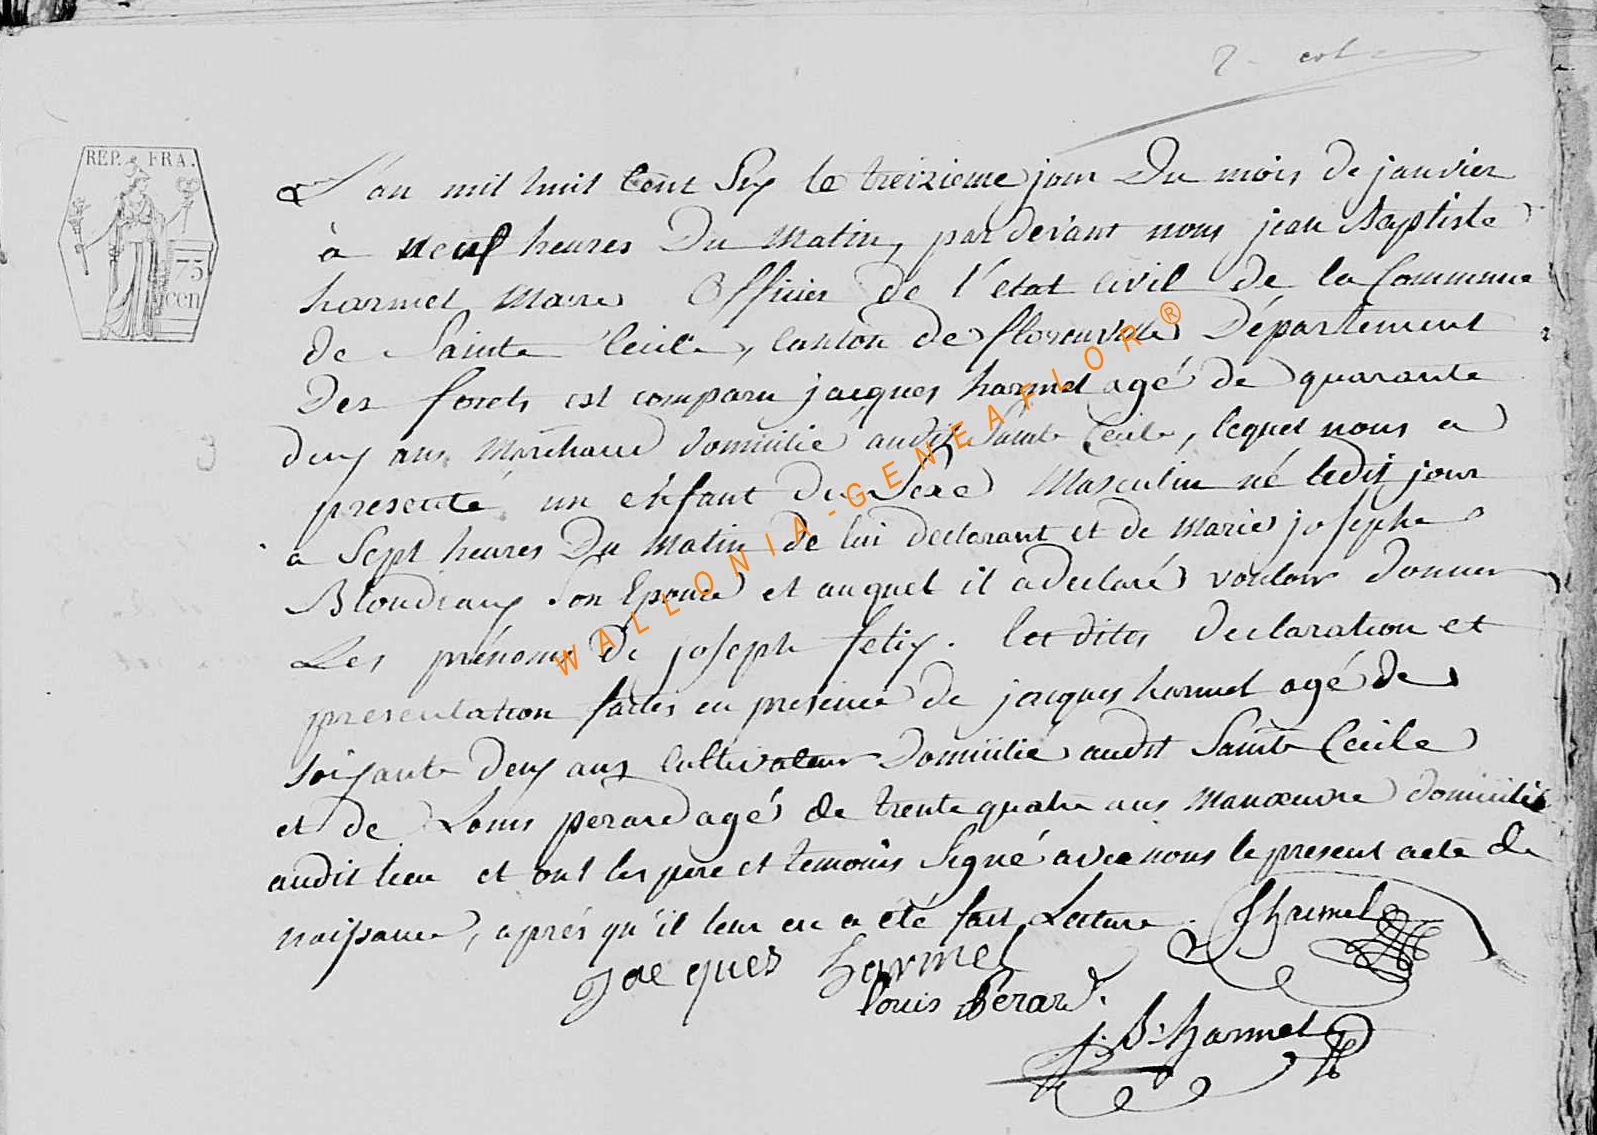 2
REP. FRA.
75
cen
L'an mil huit Cent Six le treizieme jour Du mois de janvier
à neuf heures Du Matin, pardevant nous jean Baptiste
harmel Maire Officier de l'état Civil de la Commune
de Sainte Cecile, Canton de florenville Département
Des forets est comparu jacques harmel agé de quarante
deux ans Marchand domicilié audit Sainte Cecile, lequel nous a
presenté un enfant du Sexe Masculin né ledit jour
a Sept heures Du Matin de lui declarant et de Marie josephe
Blondiaux Son Epouse et auquel il a declaré vouloir donner
Les prénoms de joseph felix. les dites declaration et
presentation faites en presence de jacques harmel agé de
soixante deux ans Cultivateur Domicilié audit Sainte Cecile
et de Louis perard agé de trente quatre ans Manœuvre domicilié
audit lieu et ont les pere et temoins Signé avec nous le present acte de
naissance, après qu'il leur en a été fait Lecture. J harmel
Jacques harmel
louis Perard.
j. B. harmel
WALLONIA-GENEAFLOR®